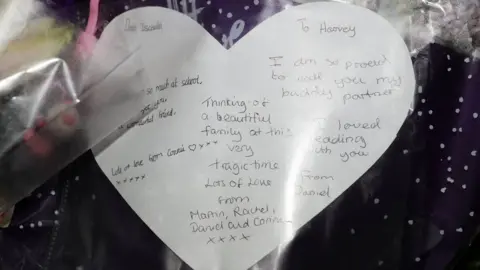 To Harvey
I am so proud
to call you my
buddy partner
I loved
reading
with you
From
Daniel
Thinking of
a beautiful
family at this
very
tragic time
Lots of Love
from
Martin, Rachel,
Daniel and
xxxx
so much at school.
wonderful
Lots of love from
xxxxx